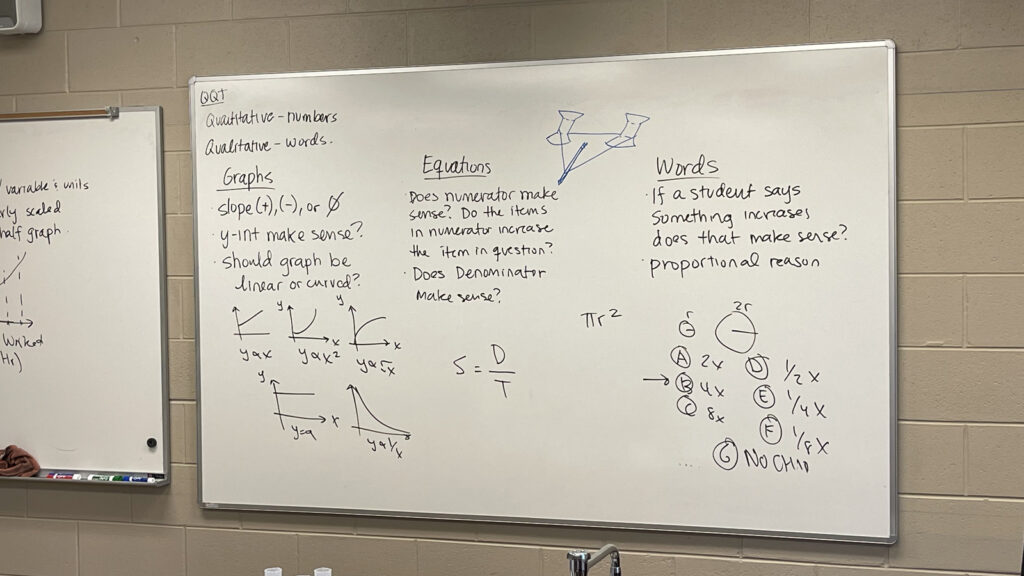 variable & units
rly scaled
half graph.
Worked
Hr)
QQT
Quatitative - numbers
Qualitative - words.
Graphs
· slope (+), (-), or ∅
· y-int make sense?
· should graph be
linear or curved?
y
y
x
x
y α x
y α x²
y α √x
y
x
y = a
y α 1/x
Equations
· Does numerator make
sense? Do the items
in numerator increase
the item in question?
· Does Denominator
Make sense?
S = D/T
Words
· If a student says
Something increases
does that make sense?
· proportional reason
πr²
r
2r
A 2x
→ B 4x
C 8x
D 1/2 x
E 1/4 x
F 1/8 x
G NO